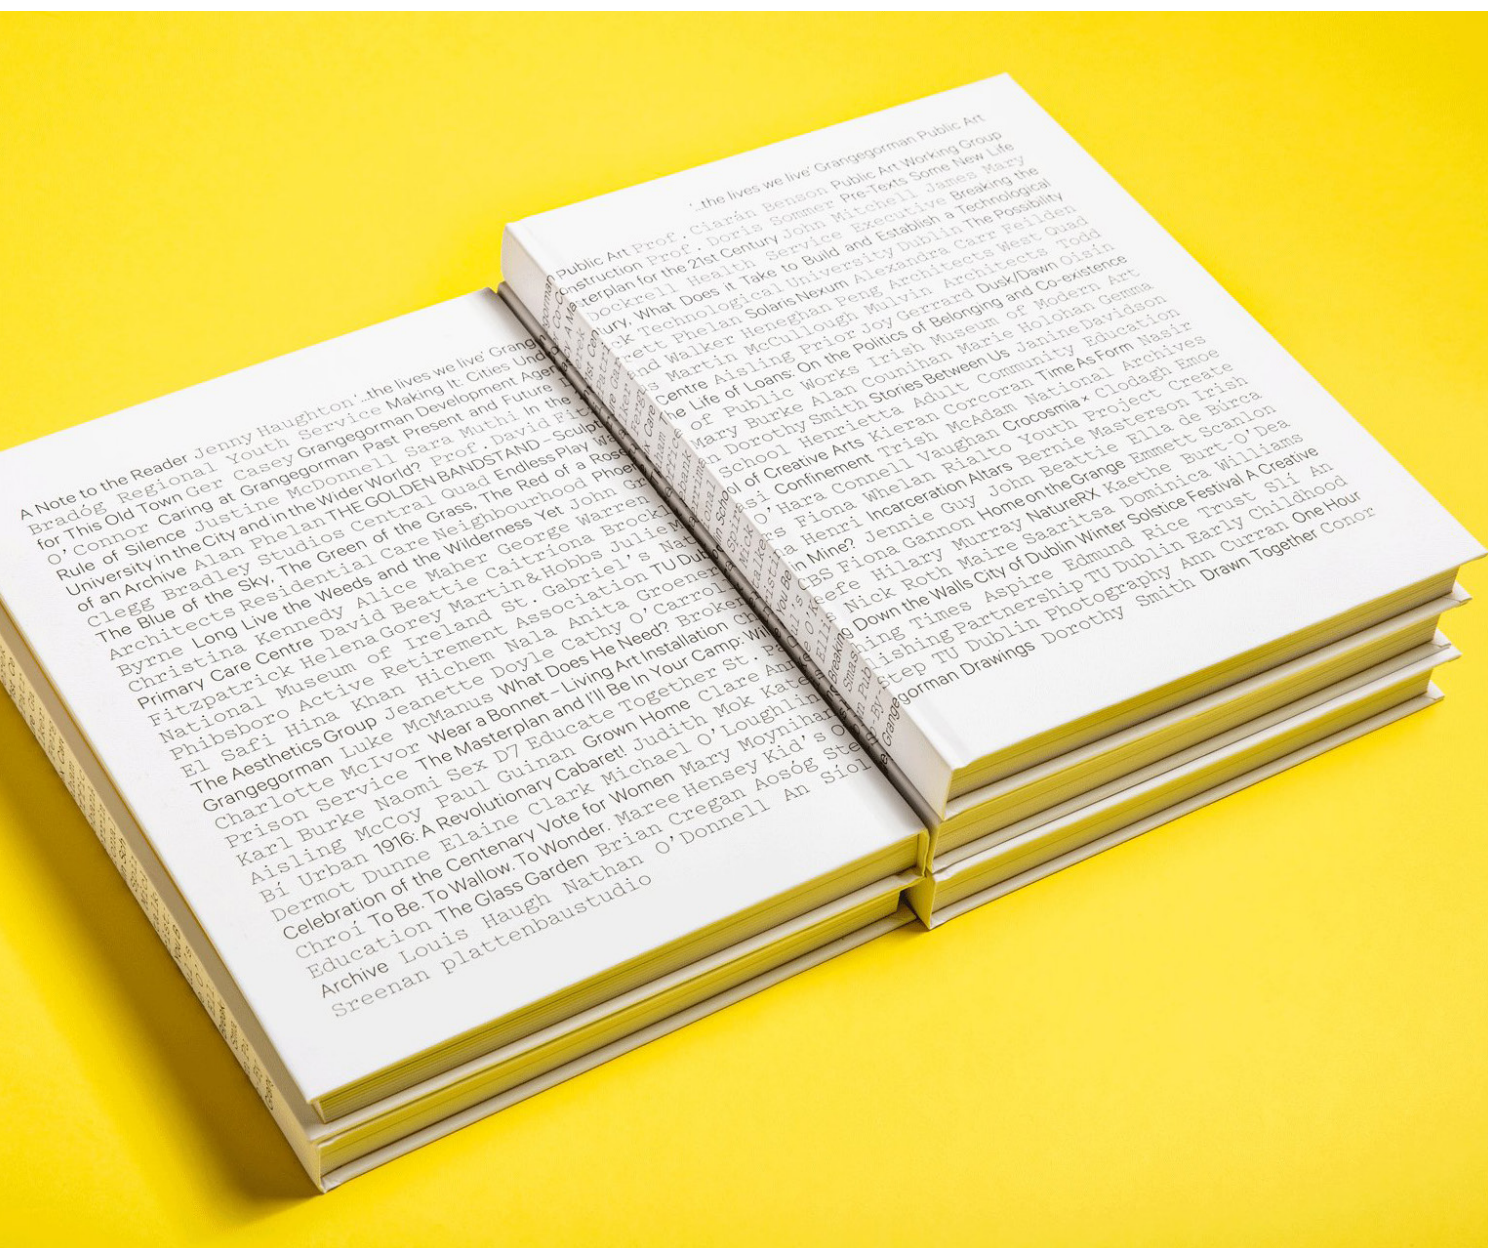 A Note to the Reader Jenny Haughton '..the lives we live'
Bradóg Regional Youth Service Making It: Cities
for This Old Town Ger Casey Grangegorman Development
O'Connor Caring at Grangegorman Past Present and Future
Rule of Silence Justine McDonnell Sara Muthi In the
University in the City and in the Wider World? Prof. David
of an Archive Alan Phelan THE GOLDEN BANDSTAND –
Clegg Bradley Studios Central Quad Endless Play
The Blue of the Sky, The Green of the Grass, The Red of a
Architects Residential Care Neighbourhood
Byrne Long Live the Weeds and the Wilderness Yet John
Christina Kennedy Alice Maher George
Primary Care Centre David Beattie Caitriona
Fitzpatrick Helena Gorey Martin & Hobbs
National Museum of Ireland St. Gabriel's
Phibsboro Active Retirement Association TU
El Safi Hina Khan Hichem Nala Anita
The Aesthetics Group Jeanette Doyle Cathy
Grangegorman Luke McManus What Does He Need?
Charlotte McIvor Wear a Bonnet – Living Art Installation
Prison Service The Masterplan and I'll Be In Your Camp:
Karl Burke Naomi Sex D7 Educate Together St.
Aisling McCoy Paul Guinan Grown Home Clare
Bí Urban 1916: A Revolutionary Cabaret! Judith Mok
Dermot Dunne Elaine Clark Michael
Celebration of the Centenary Vote for Women Mary
Chroí To Be. To Wallow. To Wonder. Maree Hensey Kid's
Education The Glass Garden Brian Cregan Aosóg
Archive Louis Haugh Nathan O'Donnell An
Sreenan plattenbaustudio
'..the lives we live' Grangegorman Public Art
Public Art Prof. Ciarán Benson Public Art Working Group
Prof. Doris Sommer Pre-Texts Some New Life
for the 21st Century John Mitchell James Mary
Health Service Executive Breaking the
What Does it Take to Build and Establish a Technological
Technological University Dublin The Possibility
Phelan Solaris Nexum Alexandra Carr Feilden
Walker Heneghan Peng Architects West Quad
Martin McCullough Mulvin Architects Todd
Centre Aisling Prior Joy Gerrard Dusk/Dawn Oisín
Life of Loans: On the Politics of Belonging and Co-existence
of Public Works Irish Museum of Modern Art
Mary Burke Alan Counihan Marie Holohan Gemma
Dorothy Smith Stories Between Us Janine Davidson
School Henrietta Adult Community Education
of Creative Arts Kieran Corcoran Time As Form Nasir
Confinement Trish McAdam National Archives
O'Hara Connell Vaughan Crocosmia × Clodagh Emoe
Fiona Whelan Rialto Youth Project Create
Henri Incarceration Altars Bernie Masterson Irish
Mine? Jennie Guy John Beattie Ella de Búrca
CBS Fiona Gannon Home on the Grange Emmett Scanlon
Hilary Murray NatureRX Kaethe Burt-O'Dea
Nick Roth Maire Saaritsa Dominica Williams
Down the Walls City of Dublin Winter Solstice Festival A Creative
Times Aspire Edmund Rice Trust Slí An
Partnership TU Dublin Early Childhood
Step TU Dublin Photography Ann Curran One Hour
Drawings Dorothy Smith Drawn Together Conor